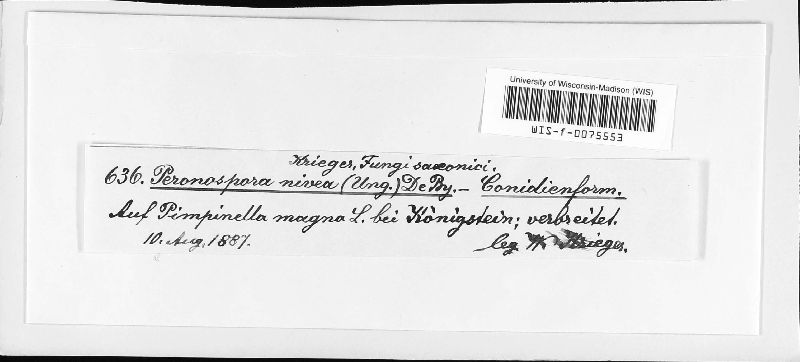 University of Wisconsin-Madison (WIS)
WIS-f-0075553
Krieger, Fungi saxonici.
636. Peronospora nivea (Ung.) De By. – Conidienform.
Auf Pimpinella magna L. bei Königstein; verbreitet.
10. Aug. 1887. leg W. Krieger.